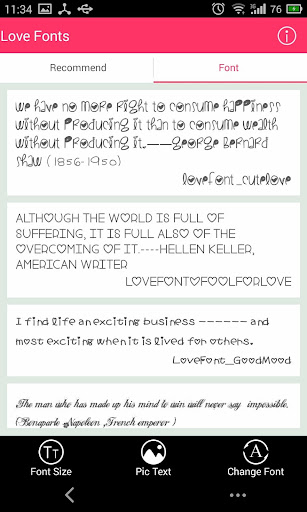 11:34
Love Fonts
Recommend
Font
We have no more right to consume happiness
without producing it than to consume wealth
without producing it.——George Bernard
Shaw (1856-1950)
lovefont_cutelove
ALTHOUGH THE WORLD IS FULL OF
SUFFERING, IT IS FULL ALSO OF THE
OVERCOMING OF IT.----HELLEN KELLER,
AMERICAN WRITER
LOVEFONTOFOOLFORLOVE
I find life an exciting business —————— and
most exciting when it is lived for others.
LoveFont_GoodMood
The man who has made up his mind to win will never say impossible.
(Benaparte Napoleon ,French emperor )
Font Size
Pic Text
Change Font